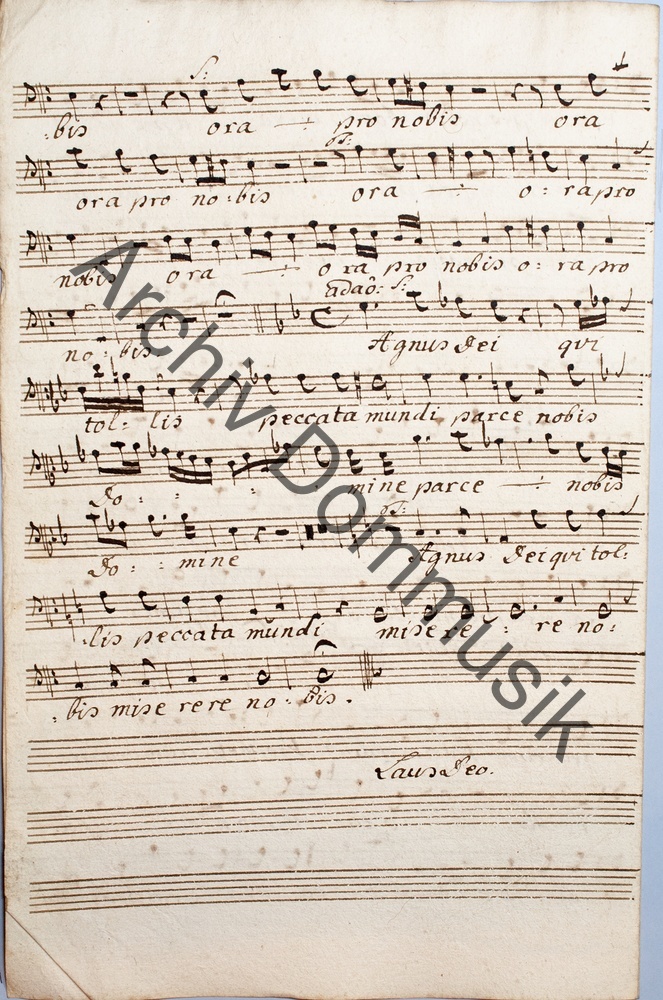 S:
:bis ora pro nobis ora
ora pro no:bis ora o:ra pro
nobis ora ora pro nobis o:ra pro
adaō: S:
no:bis Agnus Dei qui
tol:lis peccata mundi parce nobis
Do: : : : mine parce nobis
Do: : mine Agnus Dei qui tol:
:lis peccata mundi misere re : re no:
:bis mise rere no:bis.
Laus Deo.
Archiv Dommusik